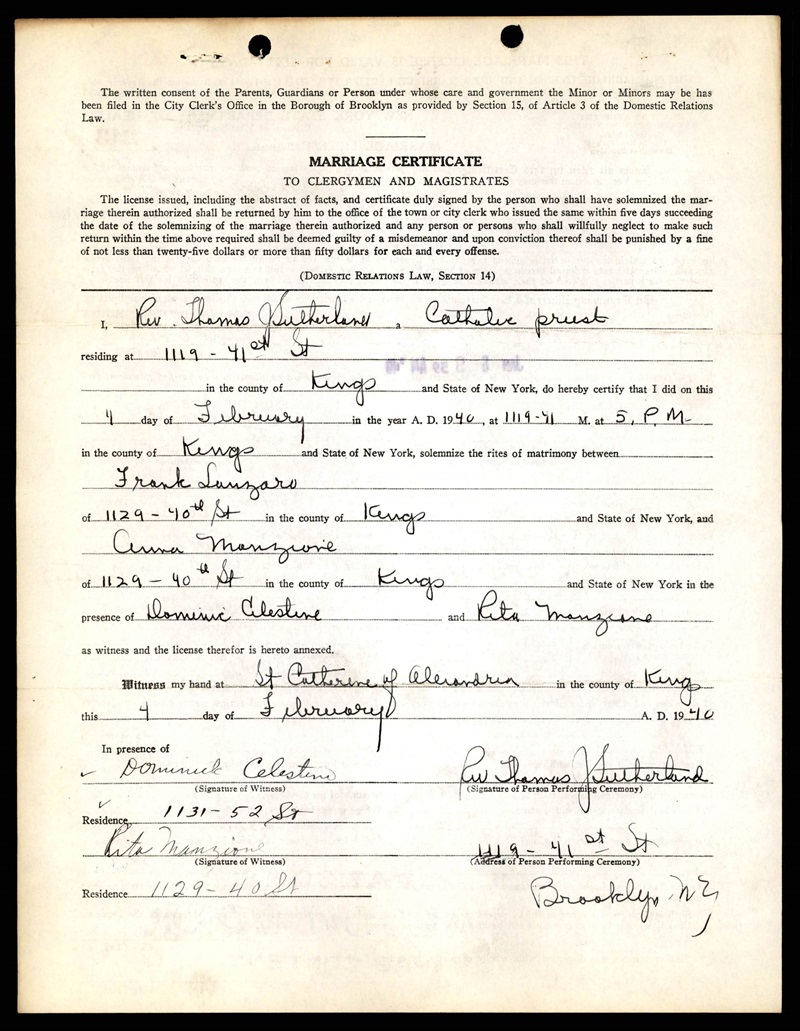 The written consent of the Parents, Guardians or Person under whose care and government the Minor or Minors may be has
been filed in the City Clerk's Office in the Borough of Brooklyn as provided by Section 15, of Article 3 of the Domestic Relations
Law.
MARRIAGE CERTIFICATE
TO CLERGYMEN AND MAGISTRATES
The license issued, including the abstract of facts, and certificate duly signed by the person who shall have solemnized the mar-
riage therein authorized shall be returned by him to the office of the town or city clerk who issued the same within five days succeeding
the date of the solemnizing of the marriage therein authorized and any person or persons who shall willfully neglect to make such
return within the time above required shall be deemed guilty of a misdemeanor and upon conviction thereof shall be punished by a fine
of not less than twenty-five dollars or more than fifty dollars for each and every offense.
(DOMESTIC RELATIONS LAW, SECTION 14)
I, Rev. Thomas J Sutherland a Catholic priest
residing at 1119 - 41st St
in the county of Kings and State of New York, do hereby certify that I did on this
4 day of February in the year A. D. 1940, at 1119-41 M. at 5, P. M.
in the county of Kings and State of New York, solemnize the rites of matrimony between
Frank Lanzaro
of 1129 - 40th St in the county of Kings and State of New York, and
Anna Manzione
of 1129 - 40th St in the county of Kings and State of New York in the
presence of Dominic Celestine and Rita Manzione
as witness and the license therefor is hereto annexed.
Witness my hand at St Catherine of Alexandria in the county of Kings
this 4 day of February A. D. 1940
In presence of
Dominick Celestine Rev Thomas J Sutherland
(Signature of Witness) (Signature of Person Performing Ceremony)
Residence 1131-52 St
Rita Manzione 1119 - 41st St
(Signature of Witness) (Address of Person Performing Ceremony)
Residence 1129-40 St Brooklyn, N.Y.